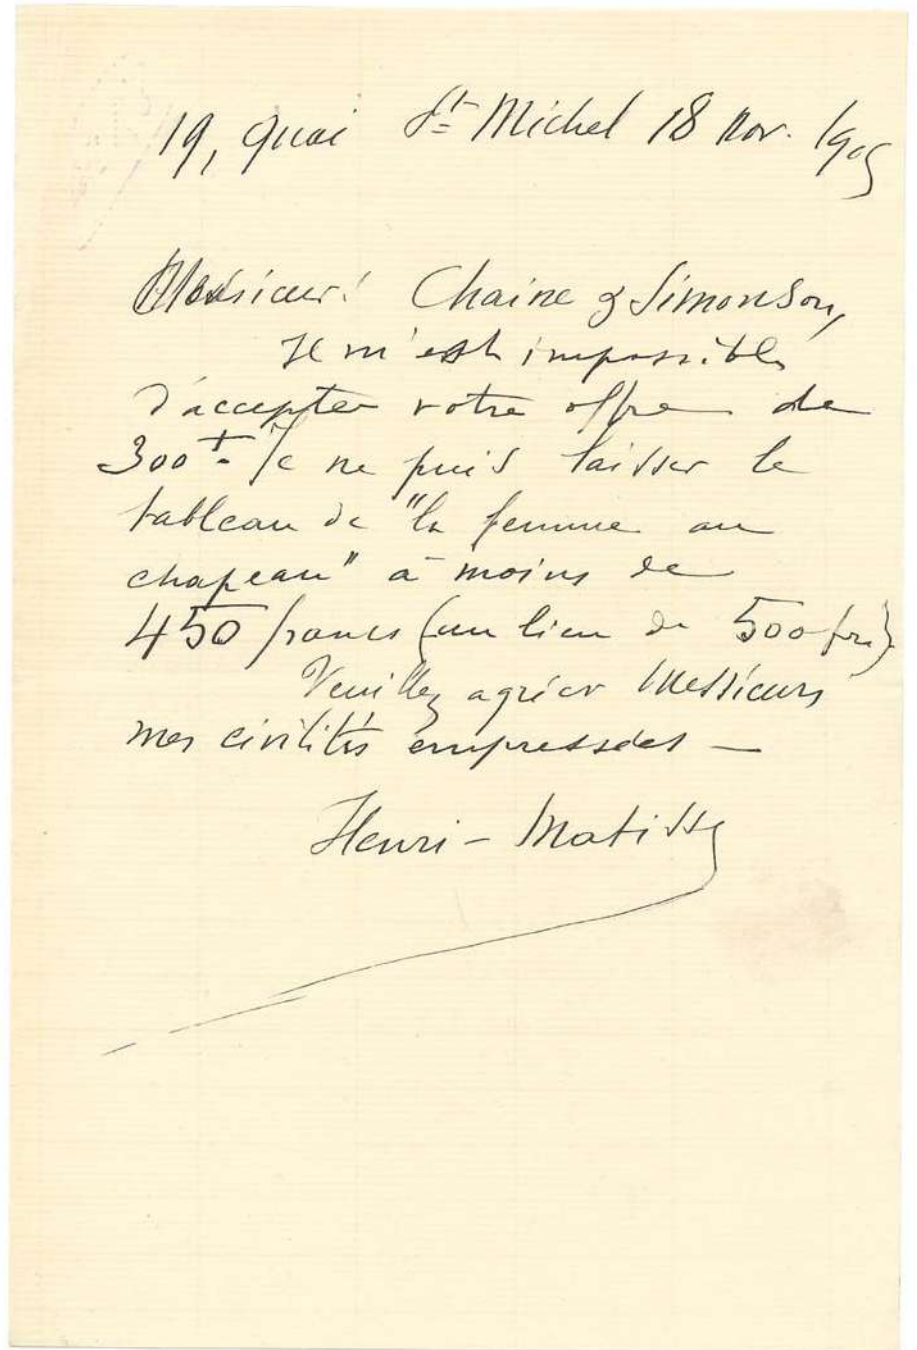 19, Quai St Michel 18 Nov. 1905
Messieurs Chaine & Simonson,
Il m'est impossible
d'accepter votre offre de
300f. Je ne puis laisser le
tableau de "la femme au
chapeau" à moins de
450 francs (au lieu de 500 frs)
Veuillez agréer Messieurs
mes civilités empressées —
Henri-Matisse